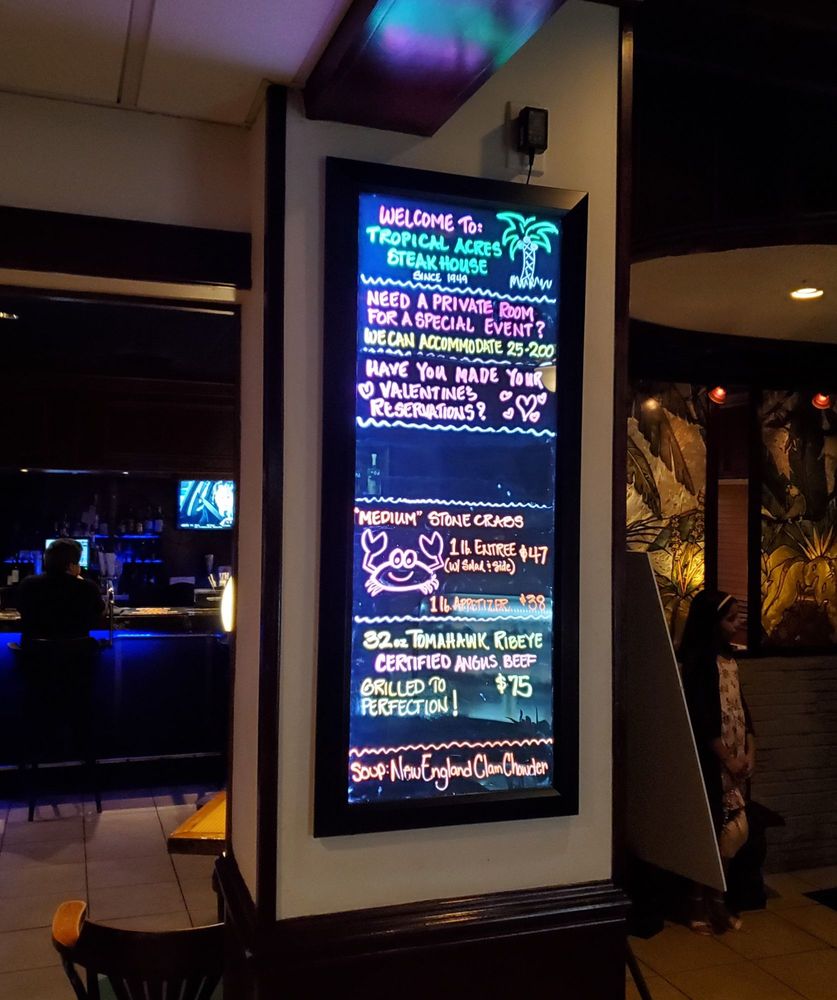 WELCOME TO:
TROPICAL ACRES
STEAKHOUSE
SINCE 1949
NEED A PRIVATE ROOM
FOR A SPECIAL EVENT?
WE CAN ACCOMMODATE 25-200
HAVE YOU MADE YOUR
VALENTINES
RESERVATIONS?
"MEDIUM" STONE CRABS
1 lb. ENTREE $47
(w/ Salad & Side)
1 lb. APPETIZER...... $38
32oz TOMAHAWK RIBEYE
CERTIFIED ANGUS BEEF
GRILLED TO $75
PERFECTION!
Soup: New England Clam Chowder